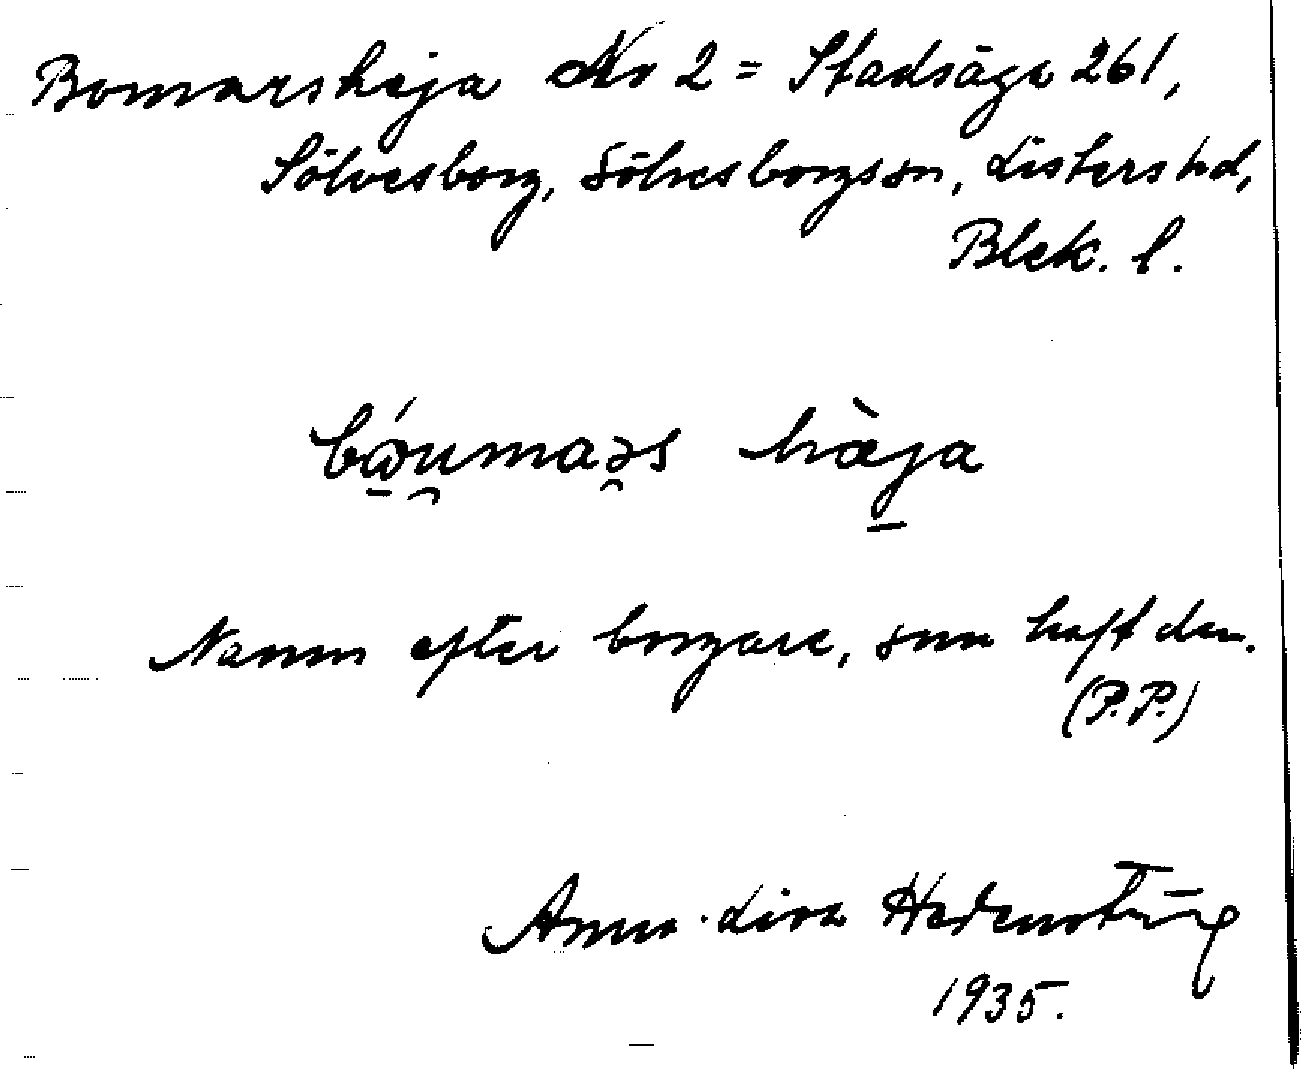 Bomarshaja No 2 = Stadsäga 261,
Sölvesborg, Sölvesborgs sn, Listers hd,
Blek. l.
hàja
Namn efter borgare, som haft den.
(P.P.)
Anna-Lisa
1935.